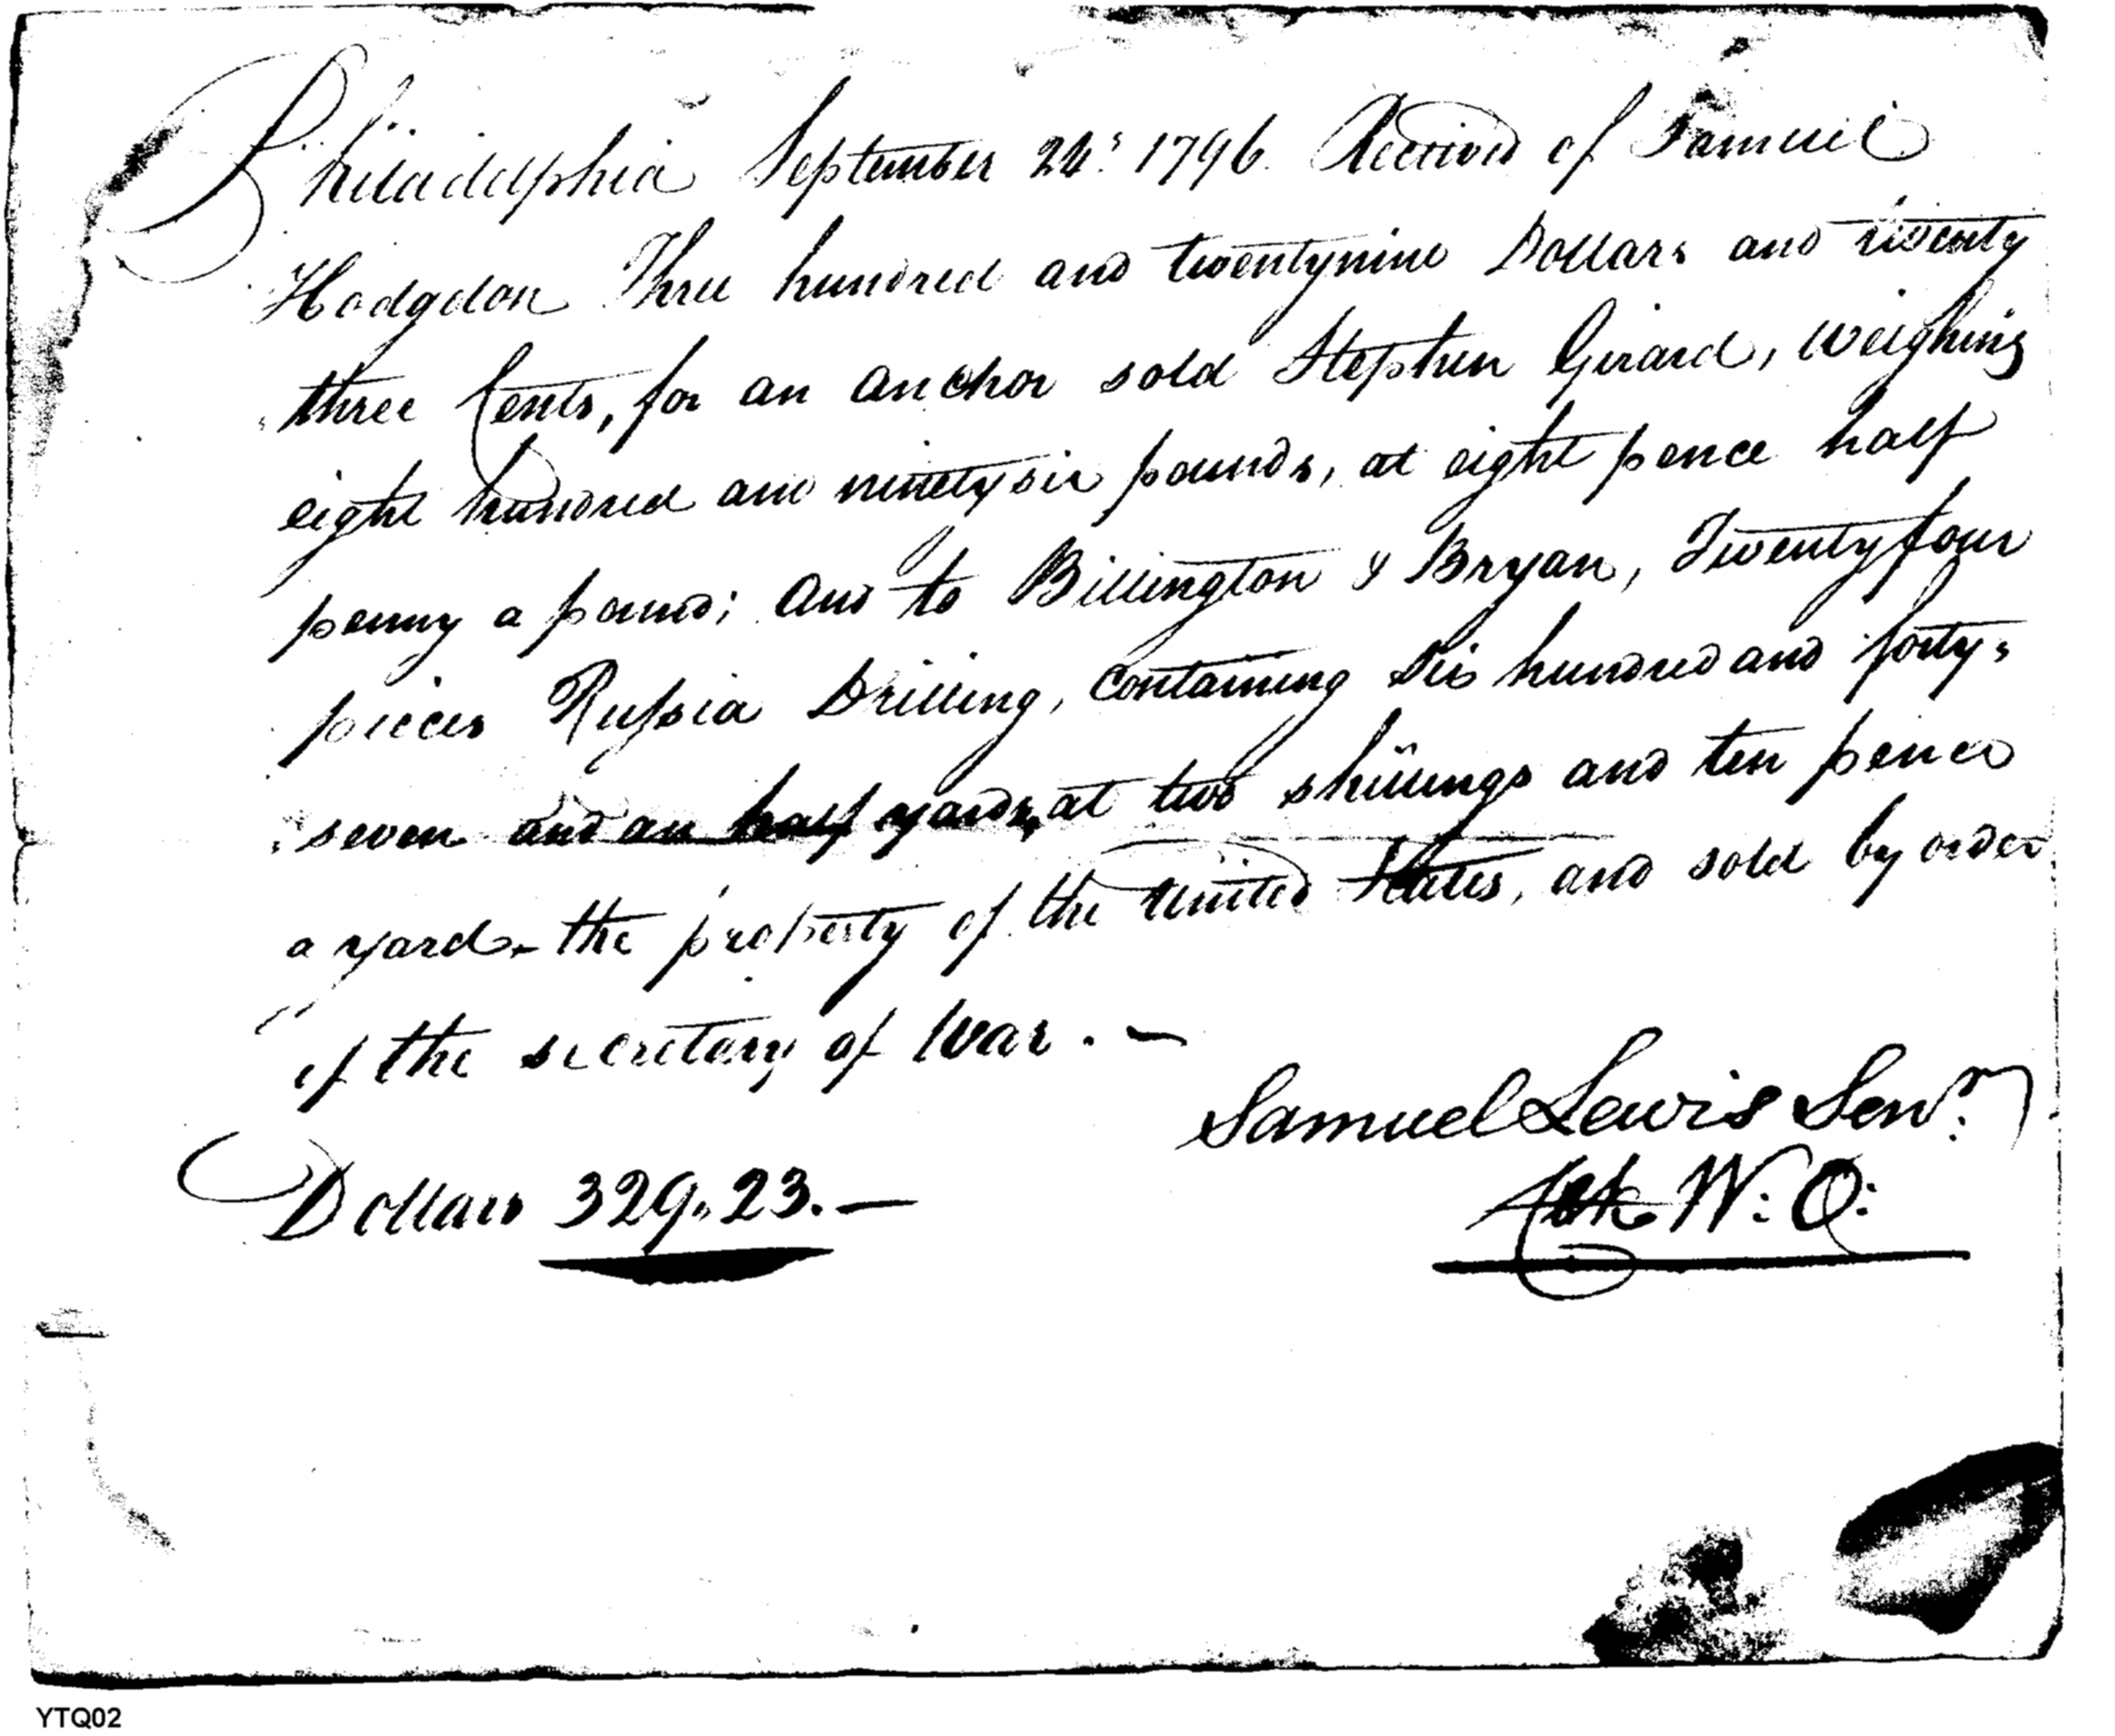 Philadelphia September 24: 1796. Received of Samuel
Hodgdon Three hundred and twentynine Dollars and twenty
three Cents, for an anchor sold Stephen Girard, weighing
eight hundred and ninetysix pounds, at eight pence half
penny a pound; and to Billington & Bryan, Twentyfour
pieces Russia Drilling, containing Six hundred and forty=
seven and an half yards, at two shillings and ten pence
a yard - the property of the United States, and sold by order
of the secretary of War. -
Samuel Lewis Senr.
W: O:
Dollars 329.. 23. -
YTQ02